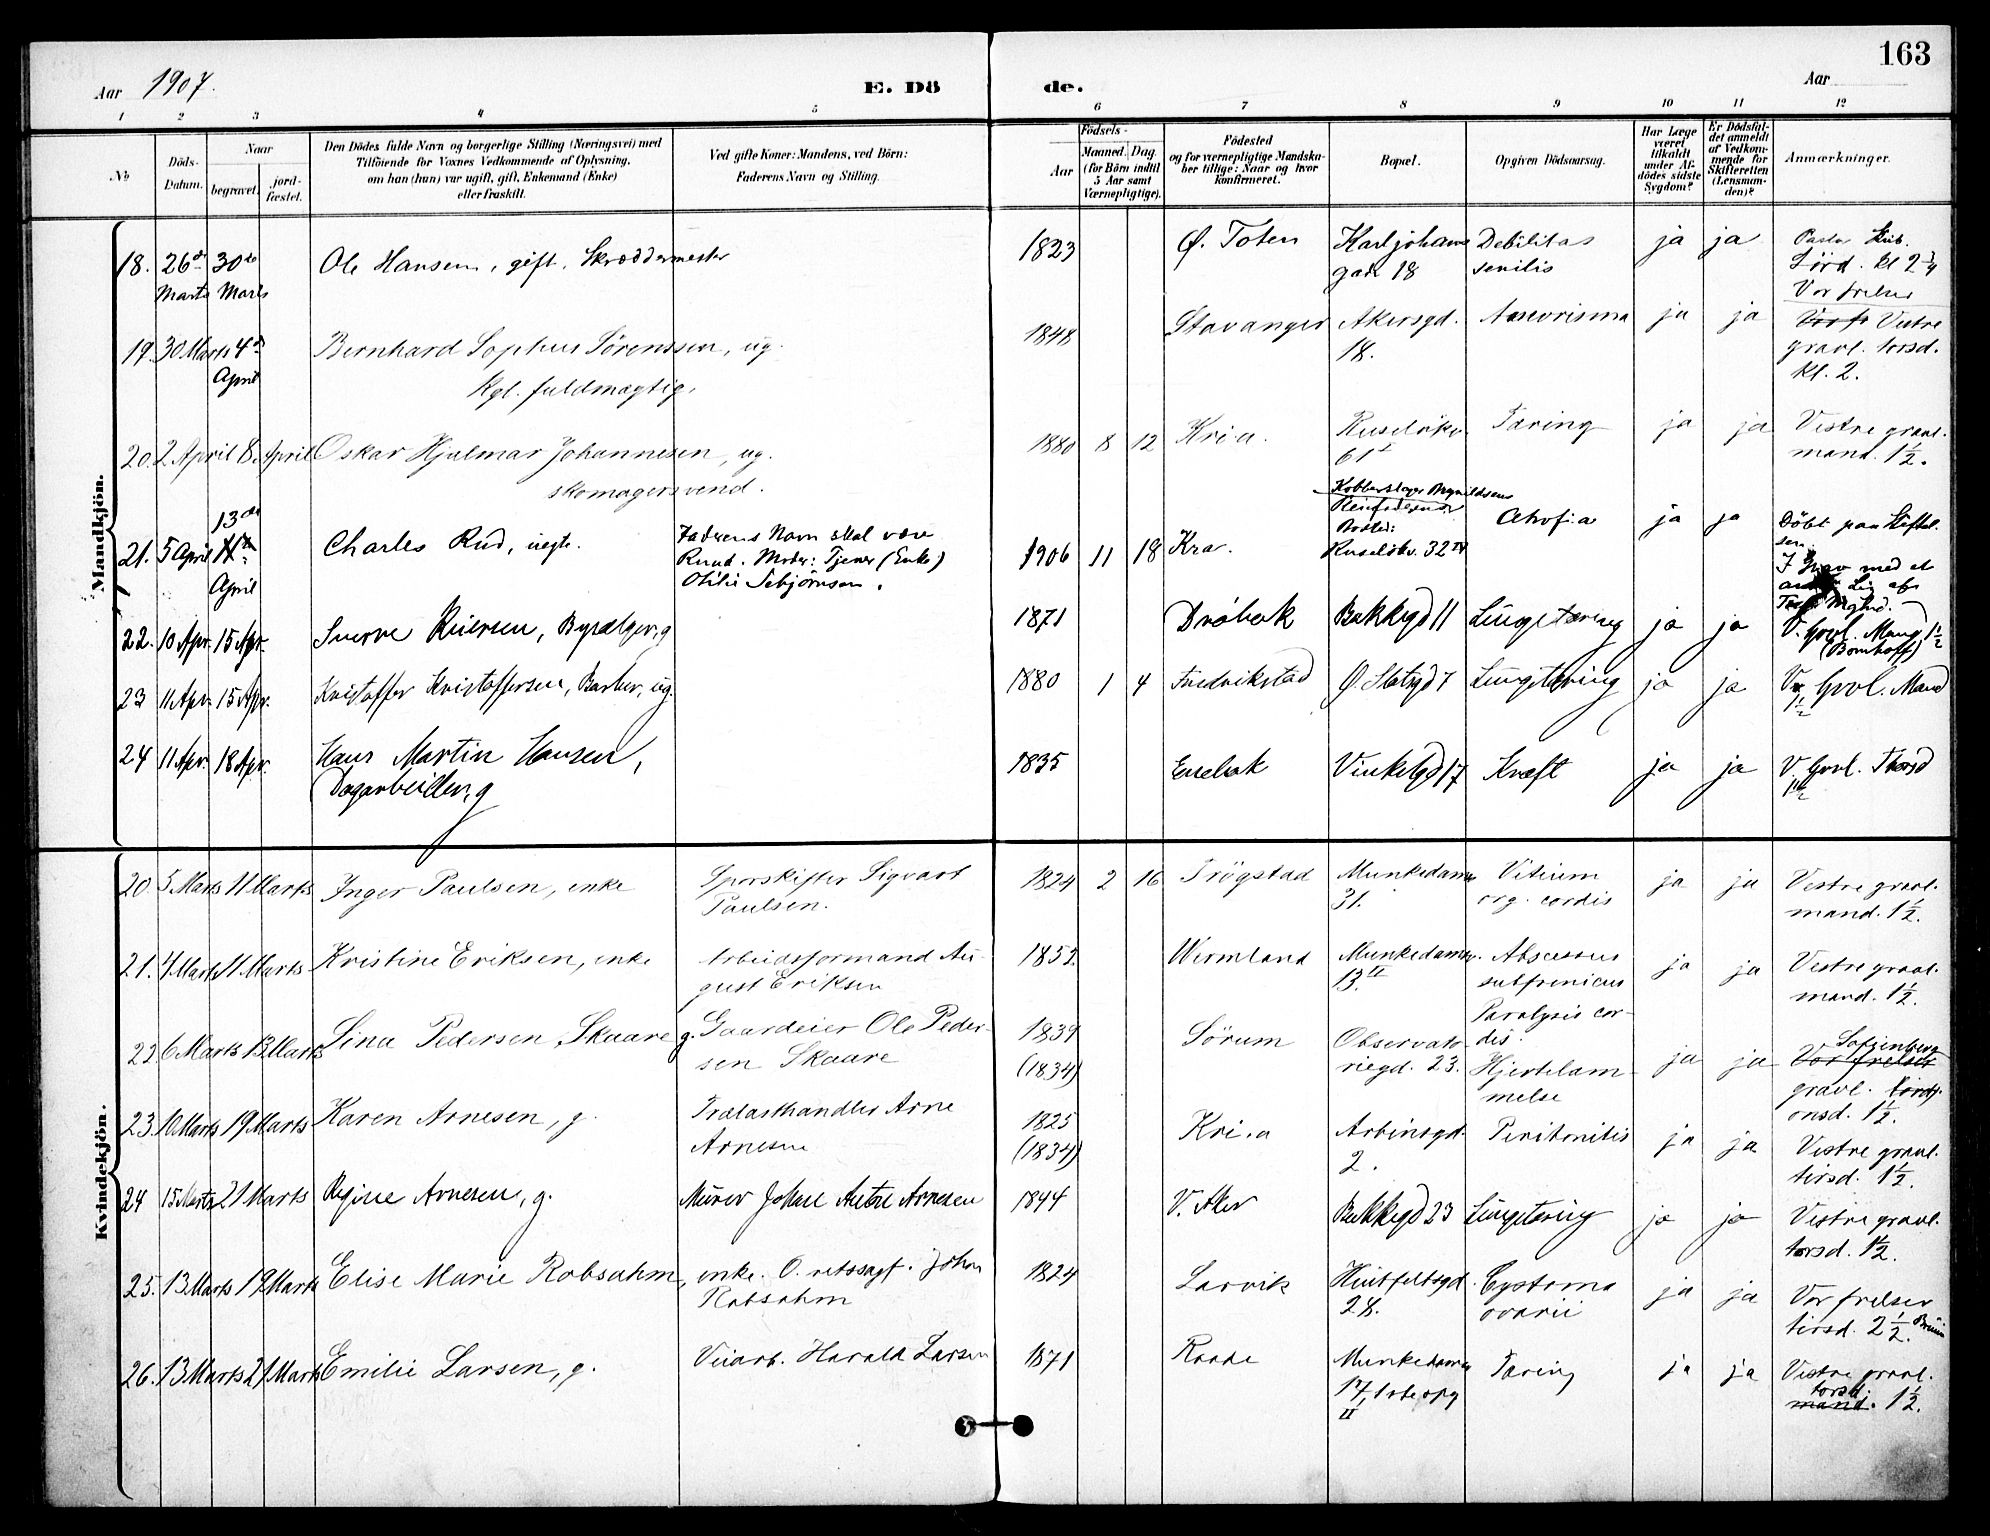 163
Aar 1907.
E. Dö
de.
Aar
1 2 3 4 5 6 7 8 9 10 11 12
No
Döds-Datum.
Naar
begravet.
jord-fæstet.
Den Dödes fulde Navn og borgerlige Stilling (Næringsvei) med
Tilföiende for Voxnes Vedkommende af Oplysning,
om han (hun) var ugift, gift, Enkemand (Enke)
eller fraskilt.
Ved gifte Koner: Mandens, ved Börn:
Faderens Navn og Stilling.
Födsels-
Aar
Maaned. Dag.
(for Börn indtil
5 Aar samt
Værnepligtige).
Födested
og for værnepligtige Mandska-
ber tillige: Naar og hvor
konfirmeret.
Bopæl.
Opgiven Dödsaarsag.
Har Læge
været
tilkaldt
under Af-
dödes sidste
Sygdom?
Er Dödsfal-
det anmeldt
af Vedkom-
mende for
Skifteretten
(Lensman-
den)?
Anmærkninger.
Mandkjön.
18. 26de Marts 30te Marts Ole Hansen, gift, Skræddermester 1823 Ø. Toten Karl johans gade 18 Debilitas senilis ja ja
Lörd. kl 2 3/4
Vor frelser
19. 30 Marts 4de April Bernhard Sophus Sörenssen, ug.
kgl. fuldmægtig. 1848 Stavanger Akersgd. 18. ja ja Vestre
gravl. torsd.
kl. 2.
20. 2 April 8. April Oskar Hjalmar Johannesen, ug.
skomagersvend. 1880 8 12 Kri.a. Ruselökv. 61 I Tæring ja ja Vestre gravl.
mand. 1 1/2.
21. 5 April 13de April Charles Rud, uegte. Faderens Navn skal være
Ruud. Moder: Tjener (Enke)
1906 11 18 Kra. Kobberslager
Bosted:
Ruselökv. 32 IV Atrofia ja ja Döbt paa Stiftel-
sen.
I Grav med et
22. 10 Apr. 15 Apr. Sverre Reiersen, g 1871 Dröbak Bakkegd 11 Lungetæring ja ja V. Grvl. Mand 1 1/2
(Bomhoff)
23 11 Apr. 15 Apr. Kristoffer Kristoffersen, Barber, ug. 1880 1 4 Fredrikstad Ø. Slotsgd 7 Lungetæring ja ja V. Grvl. Mand
1 1/2
24 11 Apr. 18 Apr. Hans Martin Hansen,
Dagarbeider, g 1835 Enebak Vinkelgd 17 Kræft ja ja V. Grvl. Thorsd
1 1/2
Kvindekjön.
20. 5 Marts 11 Marts Inger Paulsen, enke Sporskifter Sigvart
Paulsen. 1824 2 16 Trögstad Munkedamsv 31. Vitium
org. cordis ja ja Vestre gravl.
mand. 1 1/2.
21. 4 Marts 11 Marts Kristine Eriksen, enke Arbeidsformand Au-
gust Eriksen 1855. Wermland Munkedamsv. 13. II Abscessus
subfrenicus ja ja Vestre gravl.
mand. 1 1/2.
22. 6 Marts 13 Marts Sina Pedersen Skaare g. Gaardeier Ole Peder-
sen Skaare 1839
(1834) Sörum Observato-
riegd. 23. Paralysis cor-
dis.
Hjertelam-
melse ja ja Vor frelser
gravl. torsd.
onsd. 1 1/2.
23. 10 Marts 19 Marts Karen Arnesen, g. Trælasthandler Arne
Arnesen 1825
(1834) Kri.a Arbinsgd. 2. Peritonitis ja ja Vestre gravl.
tirsd. 1 1/2.
24 15 Marts 21 Marts Regine Arnesen, g. Murer Johan Anton Arnesen 1844 V. Aker Bakkegd 23 Lungetæring ja ja Vestre gravl.
torsd. 1 1/2.
25. 13 Marts 19 Marts Elise Marie Robsahm, enke. O. retssagf. Johan
Robsahm 1824 Larvik Huitfeltsgd. 28. Cystoma
ovarii ja ja Vor frelser
tirsd. 2 1/2.
26. 13 Marts 21 Marts Emilie Larsen, g. Veiarb. Harald Larsen 1871 Raade Munkedamsv 17, 1ste opg
II Tæring ja ja Vestre gravl.
torsd.
mand. 1 1/2.